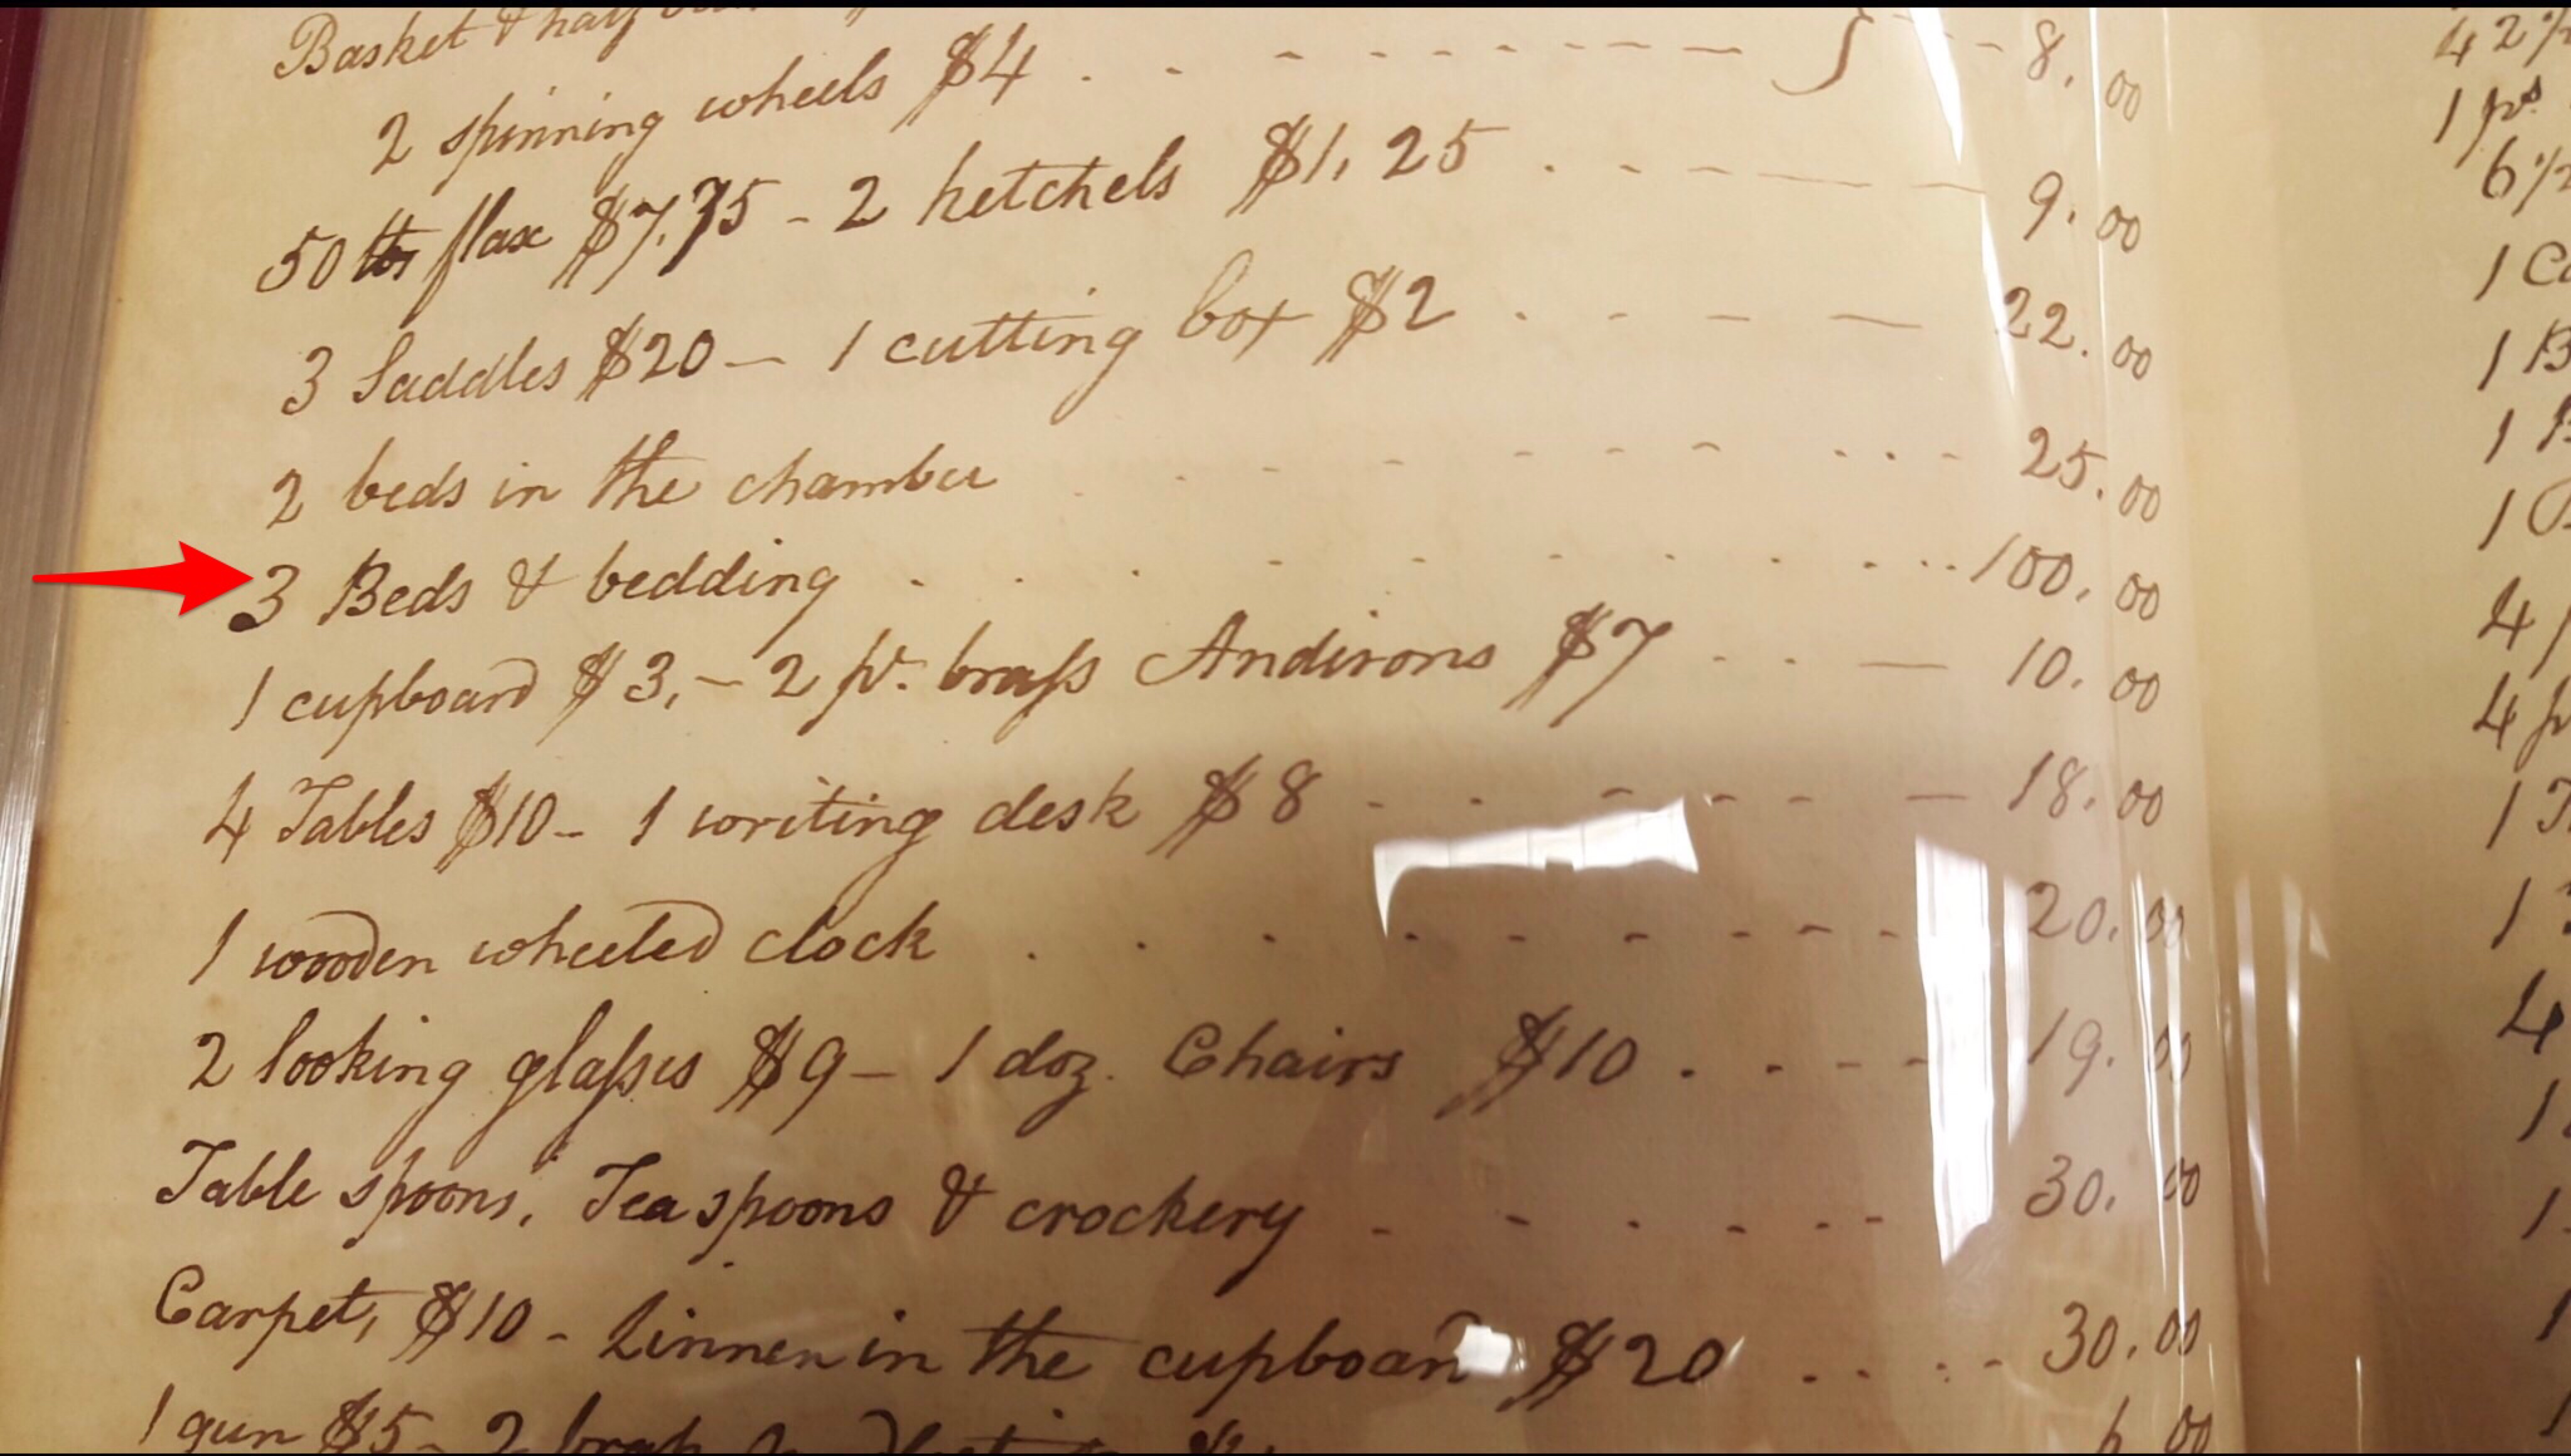 Basket & half
2 spinning wheels $4 8.00
50 lbs flax $7.75 - 2 hetchels $1.25 9.00
3 Saddles $20 - 1 cutting box $2 22.00
2 beds in the chamber 25.00
3 Beds & bedding 100.00
1 cupboard $3, - 2 pr. brass Andirons $7 10.00
4 Tables $10 - 1 writing desk $8 18.00
1 wooden wheeled clock 20.00
2 looking glasses $9 - 1 doz. Chairs $10 19.00
Table spoons, Tea spoons & crockery 30.00
Carpet, $10 - Linnen in the cupboard $20 30.00
1 gun $5 - 2 brass
42
1 ps
6 1/2
1
1 B
1
1
4
4
1
1
4
1
1
1